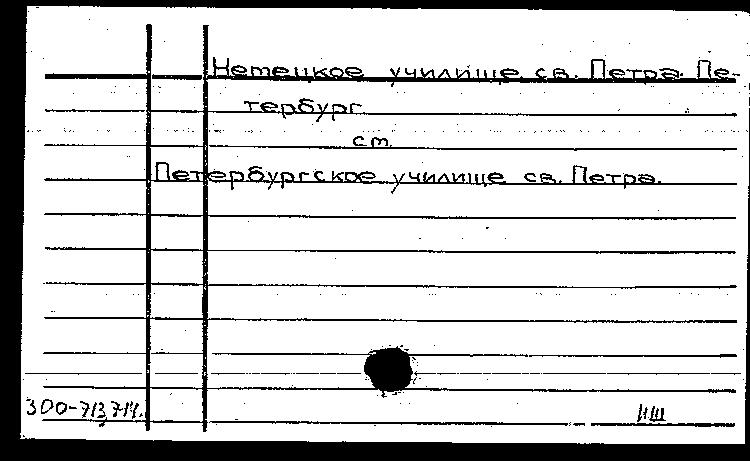 Немецкое училище св. Петра. Пе-
тербург
см.
Петербургское училище св. Петра.
300-713,714.
НШ